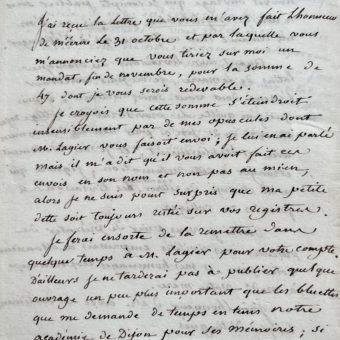 J'ai reçu la lettre que vous m'avez fait l'honneur
de m'écrire le 31 octobre et par laquelle vous
m'annonciez que vous tiriez sur moi un
mandat, fin de novembre, pour la somme de
47, dont je vous serois redevable.
Je croyois que cette somme s'éteindroit
insensiblement par de mes opuscules dont
M. Lagier vous faisoit envoi; je lui en ai parlé
mais il m'a dit qu'il vous avoit fait ces
envois en son nom et non pas au mien,
alors je ne suis point surpris que ma petite
dette soit toujours restée sur vos registres.
Je ferai ensorte de la remettre dans
quelque temps à M. Lagier pour votre compte.
d'ailleurs je ne tarderai pas à publier quelque
ouvrage un peu plus important que les bluettes
que me demande de temps en temps notre
académie de Dijon pour ses mémoires; si